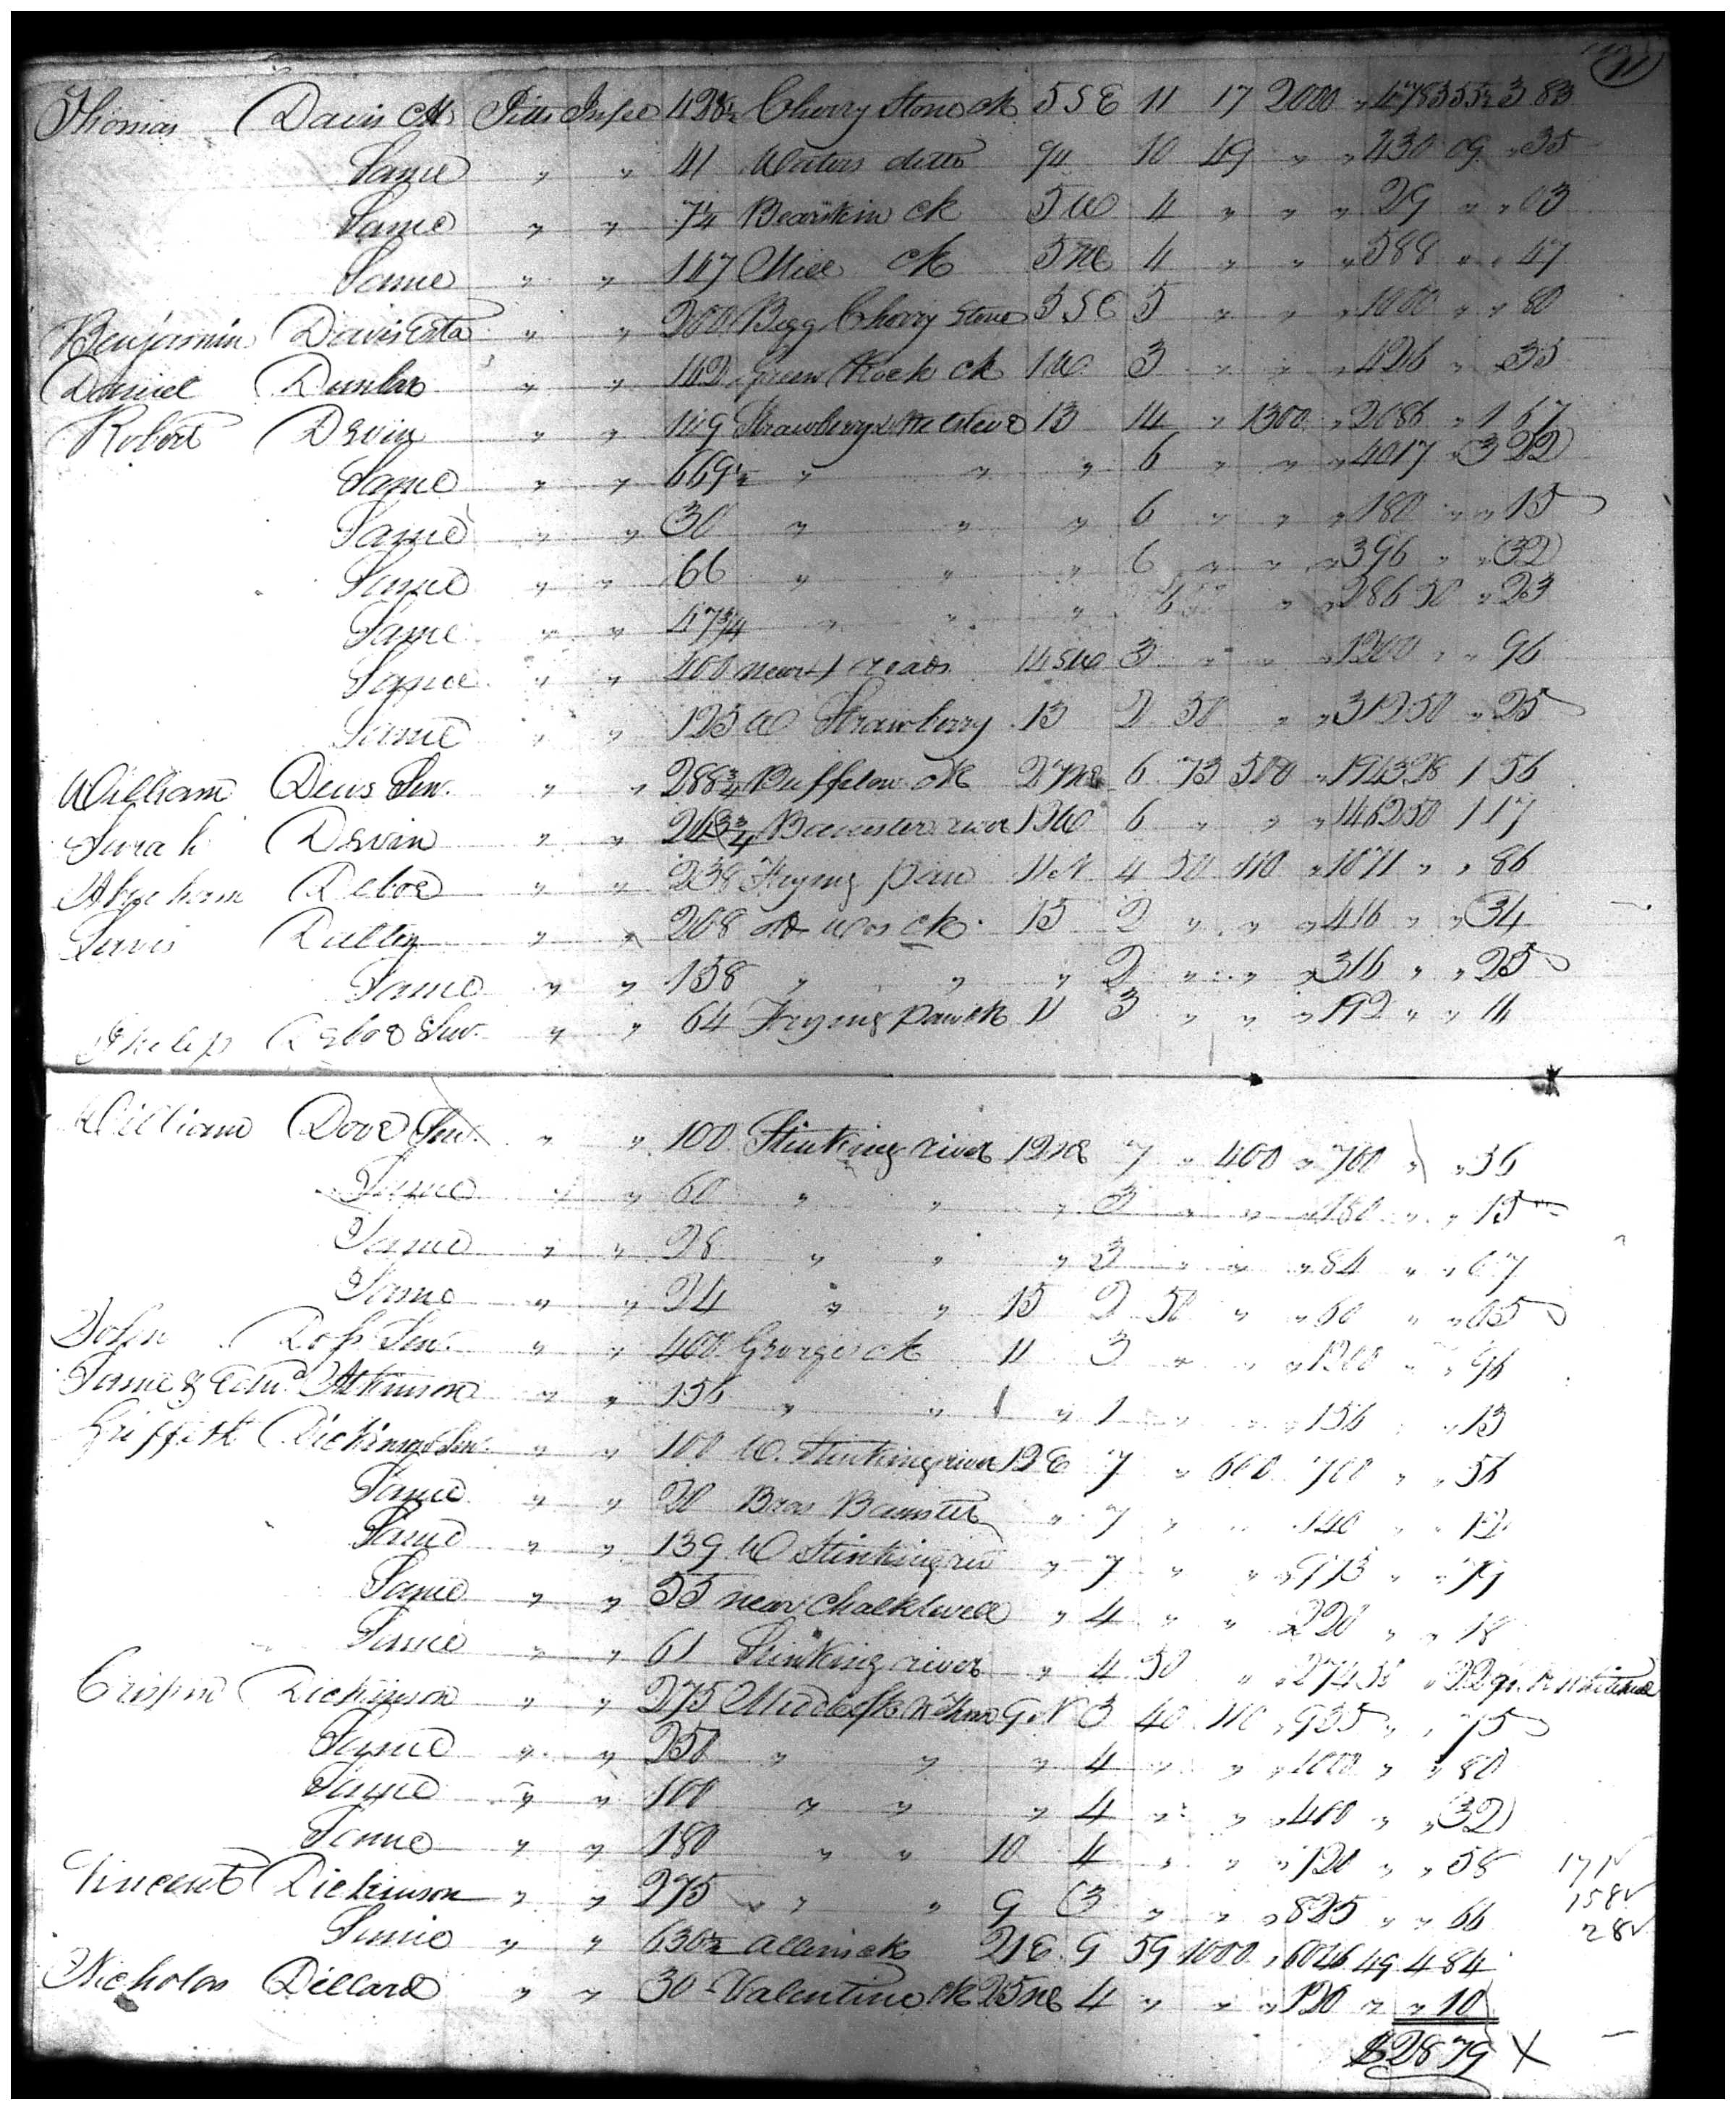 11
Thomas Davis CH Pitts In fee 428½ Cherry Stone ck 5 SE 11 17 2000 " 4783 55½ 3 83
Same " " 41 Waters ditto 9 10 49 " " 430 09 " 35
Same " " 7¼ Bearskin ck 5 W 4 " " " 29 " " 03
Same " " 147 Mill ck 5 NE 4 " " " 588 " " 47
Benjamin Davis Esta " " 200 Bigg Cherry Stone 5 SE 5 " " " 1000 " " 80
Daniel Dunlap " " 142 Green Rock ck 1 W 3 " " " 426 " 35
Robert Devin " " 149 Strawberry 13 14 " 1300 " 2086 " 1 67
Same " " 669½ " " " 6 " " " 4017 " 3 22
Same " " 30 " " " 6 " " " 180 " " 15
Same " " 66 " " " 6 " " " 396 " " 32
Same " " 47¾ " " " 6 " " 286 50 " 23
Same " " 400 near X roads 14 SW 3 " " " 1200 " " 96
Same " " 125 W Strawberry 13 2 50 " " 312 50 " 25
William Dews Senr. " " 288¾ Buffelow ck 27 NE 6 73 500 " 1943 28 1 56
Sarah Devin " " 243¾ Bannister river 13 W 6 " " " 1462 50 1 17
Abraham Deboe " " 238 Frying pan 11 N 4 50 110 " 1071 " " 86
Davis " " 208 ck 15 2 " " " 416 " " 34
Same " " 158 " " " 2 " " " 316 " " 25
Philip Deboe Senr. " " 64 Frying pan ck 11 3 " " " 192 " " 14
William Dove Senr. " " 100 Stinking river 12 NE 7 " 400 " 700 " " 56
Same " " 60 " " " 3 " " " 180 " " 15
Same " " 28 " " " 3 " " " 84 " " 07
Same " " 24 " " 15 2 50 " " 60 " " 05
John Doss Senr. " " 400 Georges ck 11 3 " " " 1200 " " 96
Same & Edmd. Atkinson " " 156 " " " 1 " " " 156 " " 13
Griffith Dickinson Senr. " " 100 W. Stinking river 12 E 7 " 600 700 " " 56
Same " " 20 Bras Bannister " 7 " " 140 " " 12
Same " " 139 W Stinking riv " 7 " " " 973 " " 79
Same " " 55 near Chalklevel " 4 " " 220 " " 18
Same " " 61 Stinking river " 4 50 " " 274 50 " 22
Crispin Dickinson " " 275 Middle fk 9 N 3 40 110 " 935 " " 75
Same " " 250 " " " 4 " " " 1000 " " 80
Same " " 100 " " " 4 " " " 400 " " 32
Same " " 180 " " 10 4 " " " 720 " " 58
Vincent Dickinson " " 275 " " " 9 3 " " " 825 " " 66
Same " " 630½ Allens ck 21 E 9 59 1000 " 6046 49 4 84
Nicholas Dillard " " 30 Valentine ck 25 NE 4 " " " 120 " " 10
158
28
$28 79 X